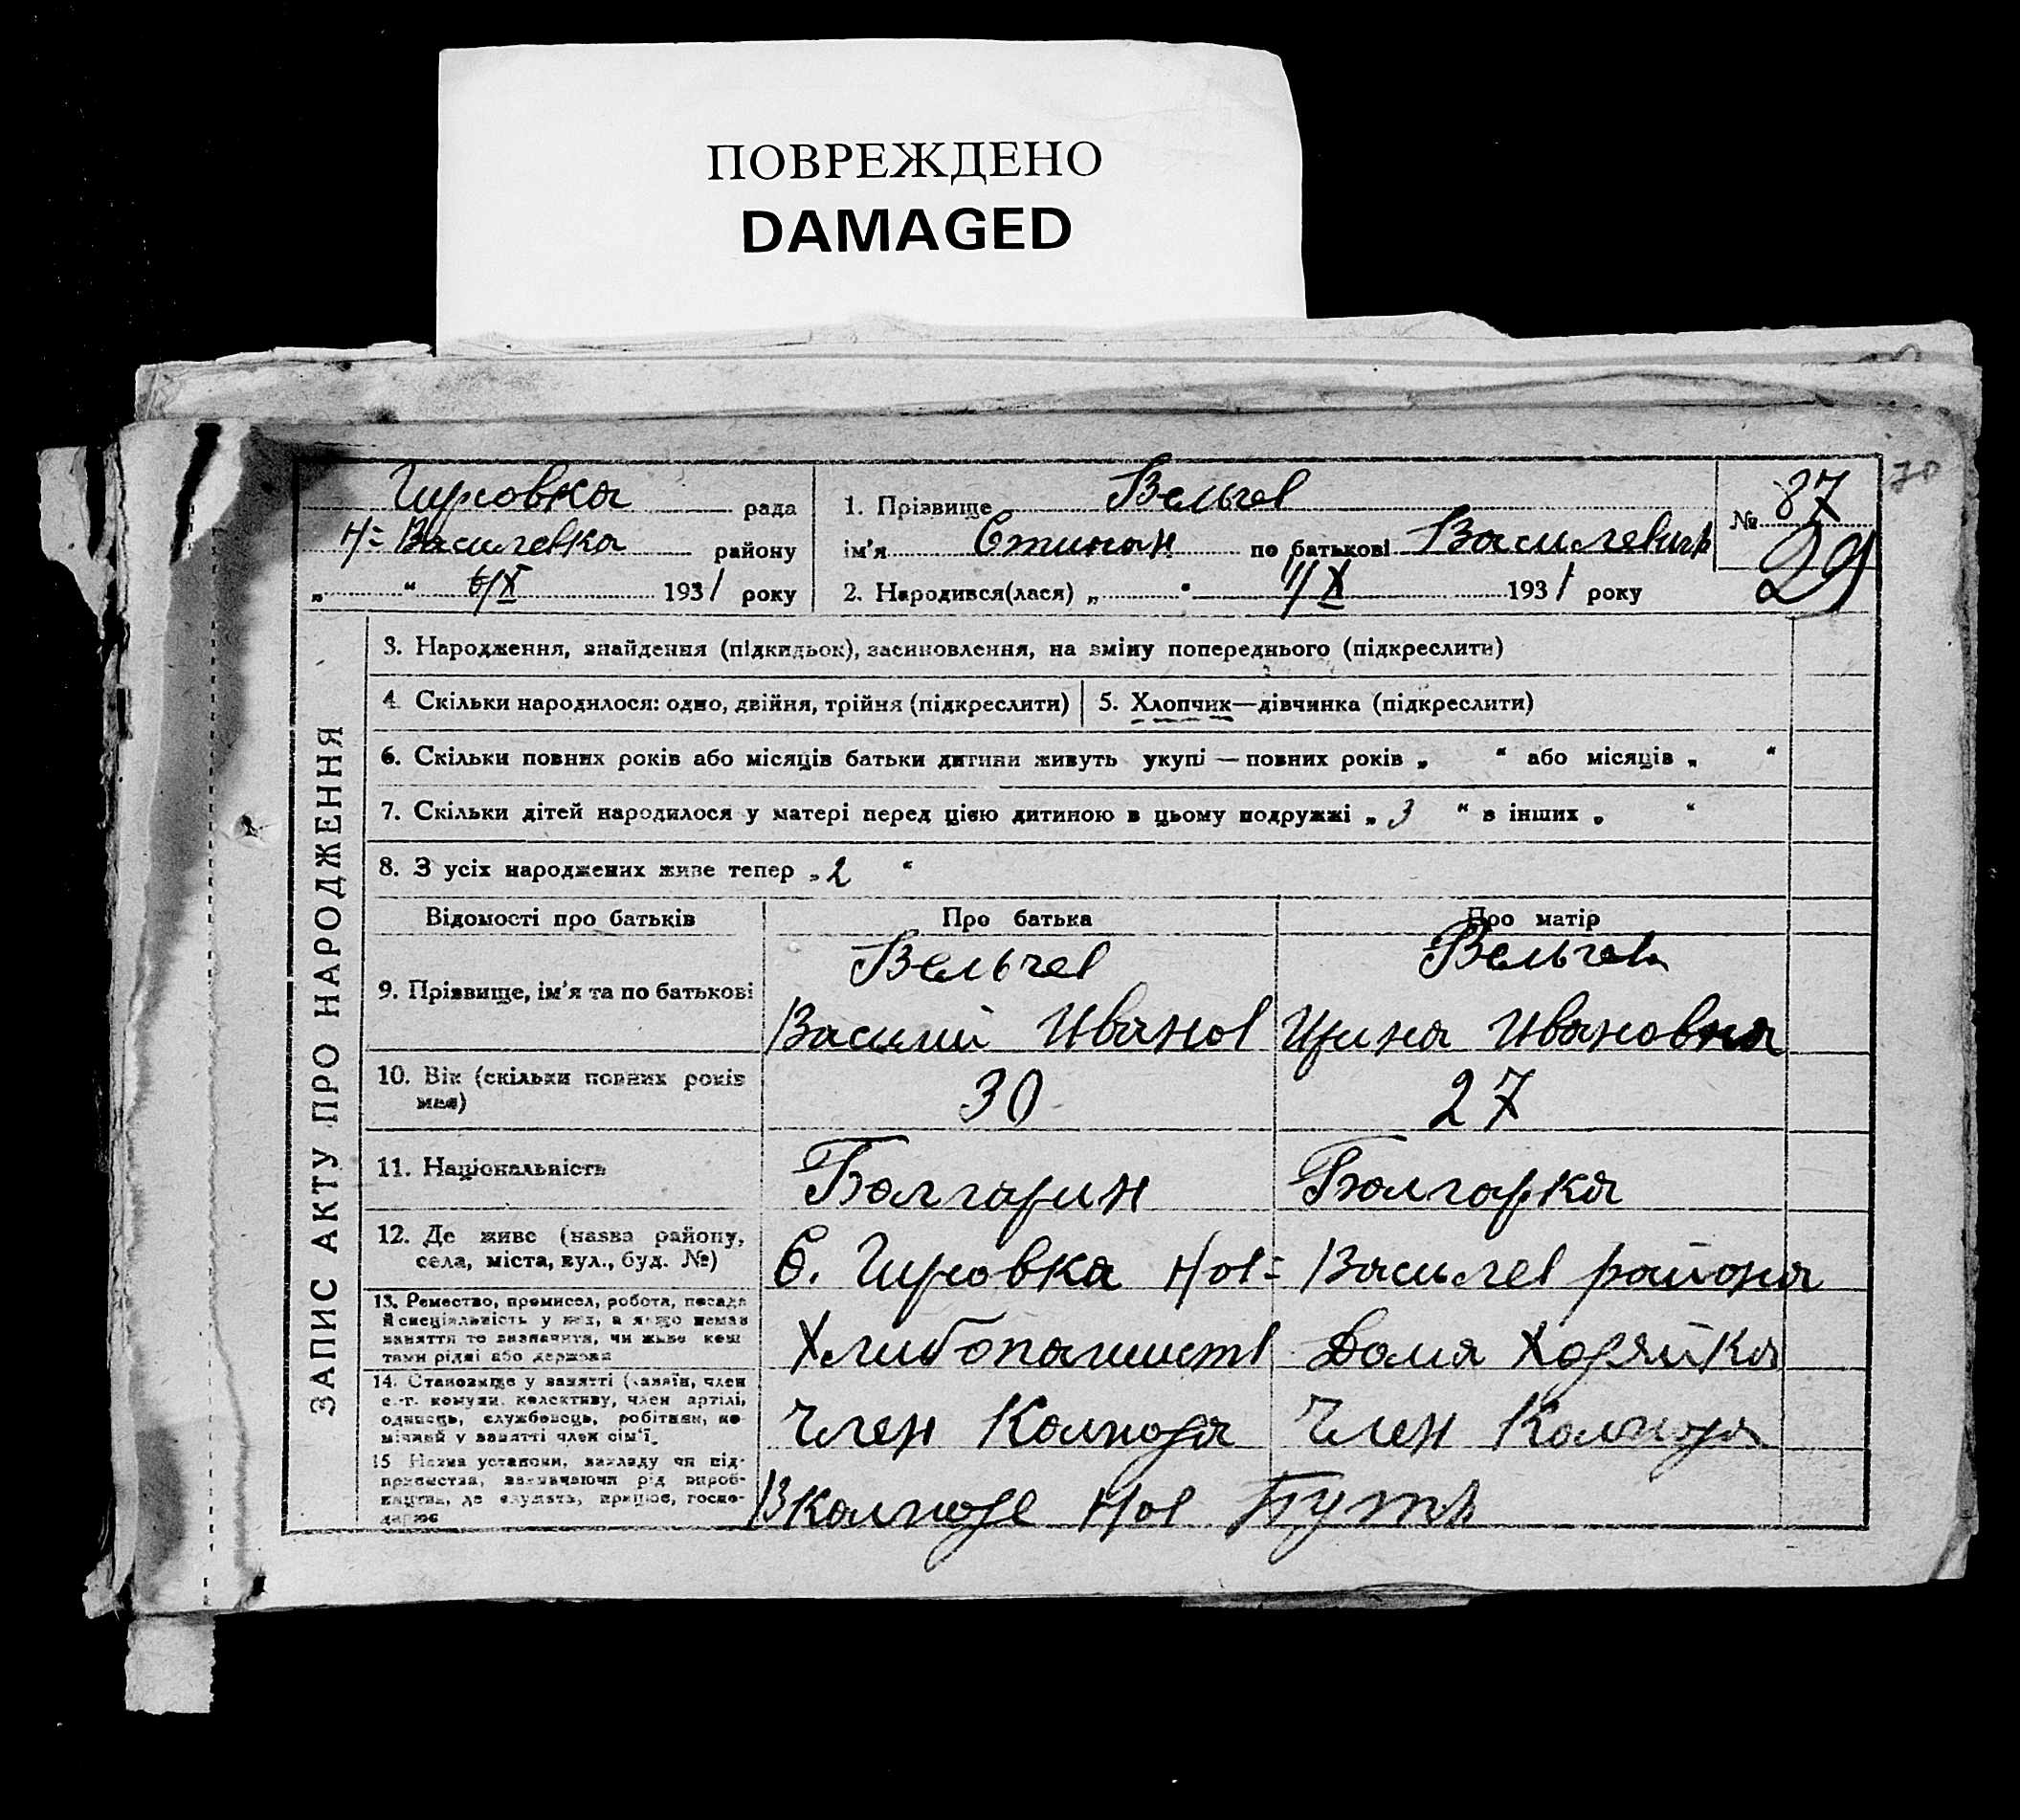 ПОВРЕЖДЕНО
DAMAGED
70
Гирсовка рада
Н=Василевка району
„ “ 6/X 1931 року
1. Прізвище Вельчев
ім’я Стипан по батькові Василевичь
2. Народився(лася) „ “ 4/X 1931 року
№ 87
29
ЗАПИС АКТУ ПРО НАРОДЖЕННЯ
3. Народження, знайдення (підкидьок), засиновлення, на зміну попереднього (підкреслити)
4. Скільки народилося: одно, двійня, трійня (підкреслити) 5. Хлопчик—дівчинка (підкреслити)
6. Скільки повних років або місяців батьки дитини живуть укупі — повних років „ “ або місяців „ “
7. Скільки дітей народилося у матері перед цією дитиною в цьому подружжі „ 3 “ в інших „ “
8. З усіх народжених живе тепер „ 2 “
Відомості про батьків Про батька Про матір
9. Прізвище, ім’я та по батькові
Вельчев
Василий Иванов
Вельчева
Ирина Ивановна
10. Вік (скільки повних років
має)
30 27
11. Національність Болгарин Болгарка
12. Де живе (назва району,
села, міста, вул., буд. №)
С. Гирсовка Нов= Василев района
13. Ремество, промисел, робота, посада
й специіяльність у них, а якщо немає
заняття то зазначити, чи живе кош
тами рідні або держави
Хлибопашиств Домя Хозяйка
14. Становище у занятті (хазяїн, член
с.-г. комуни, колективу, член артілі,
одинець, службовець, робітник, по-
мічний у занятті член сім’ї.
Член Колхоза Член Колхоза
15 Назва установи, закладу чи під-
приємства, зазначаючи рід вироб-
ництва, де служить, працює, госпо-
дарює
Вколхозе Нов Путь